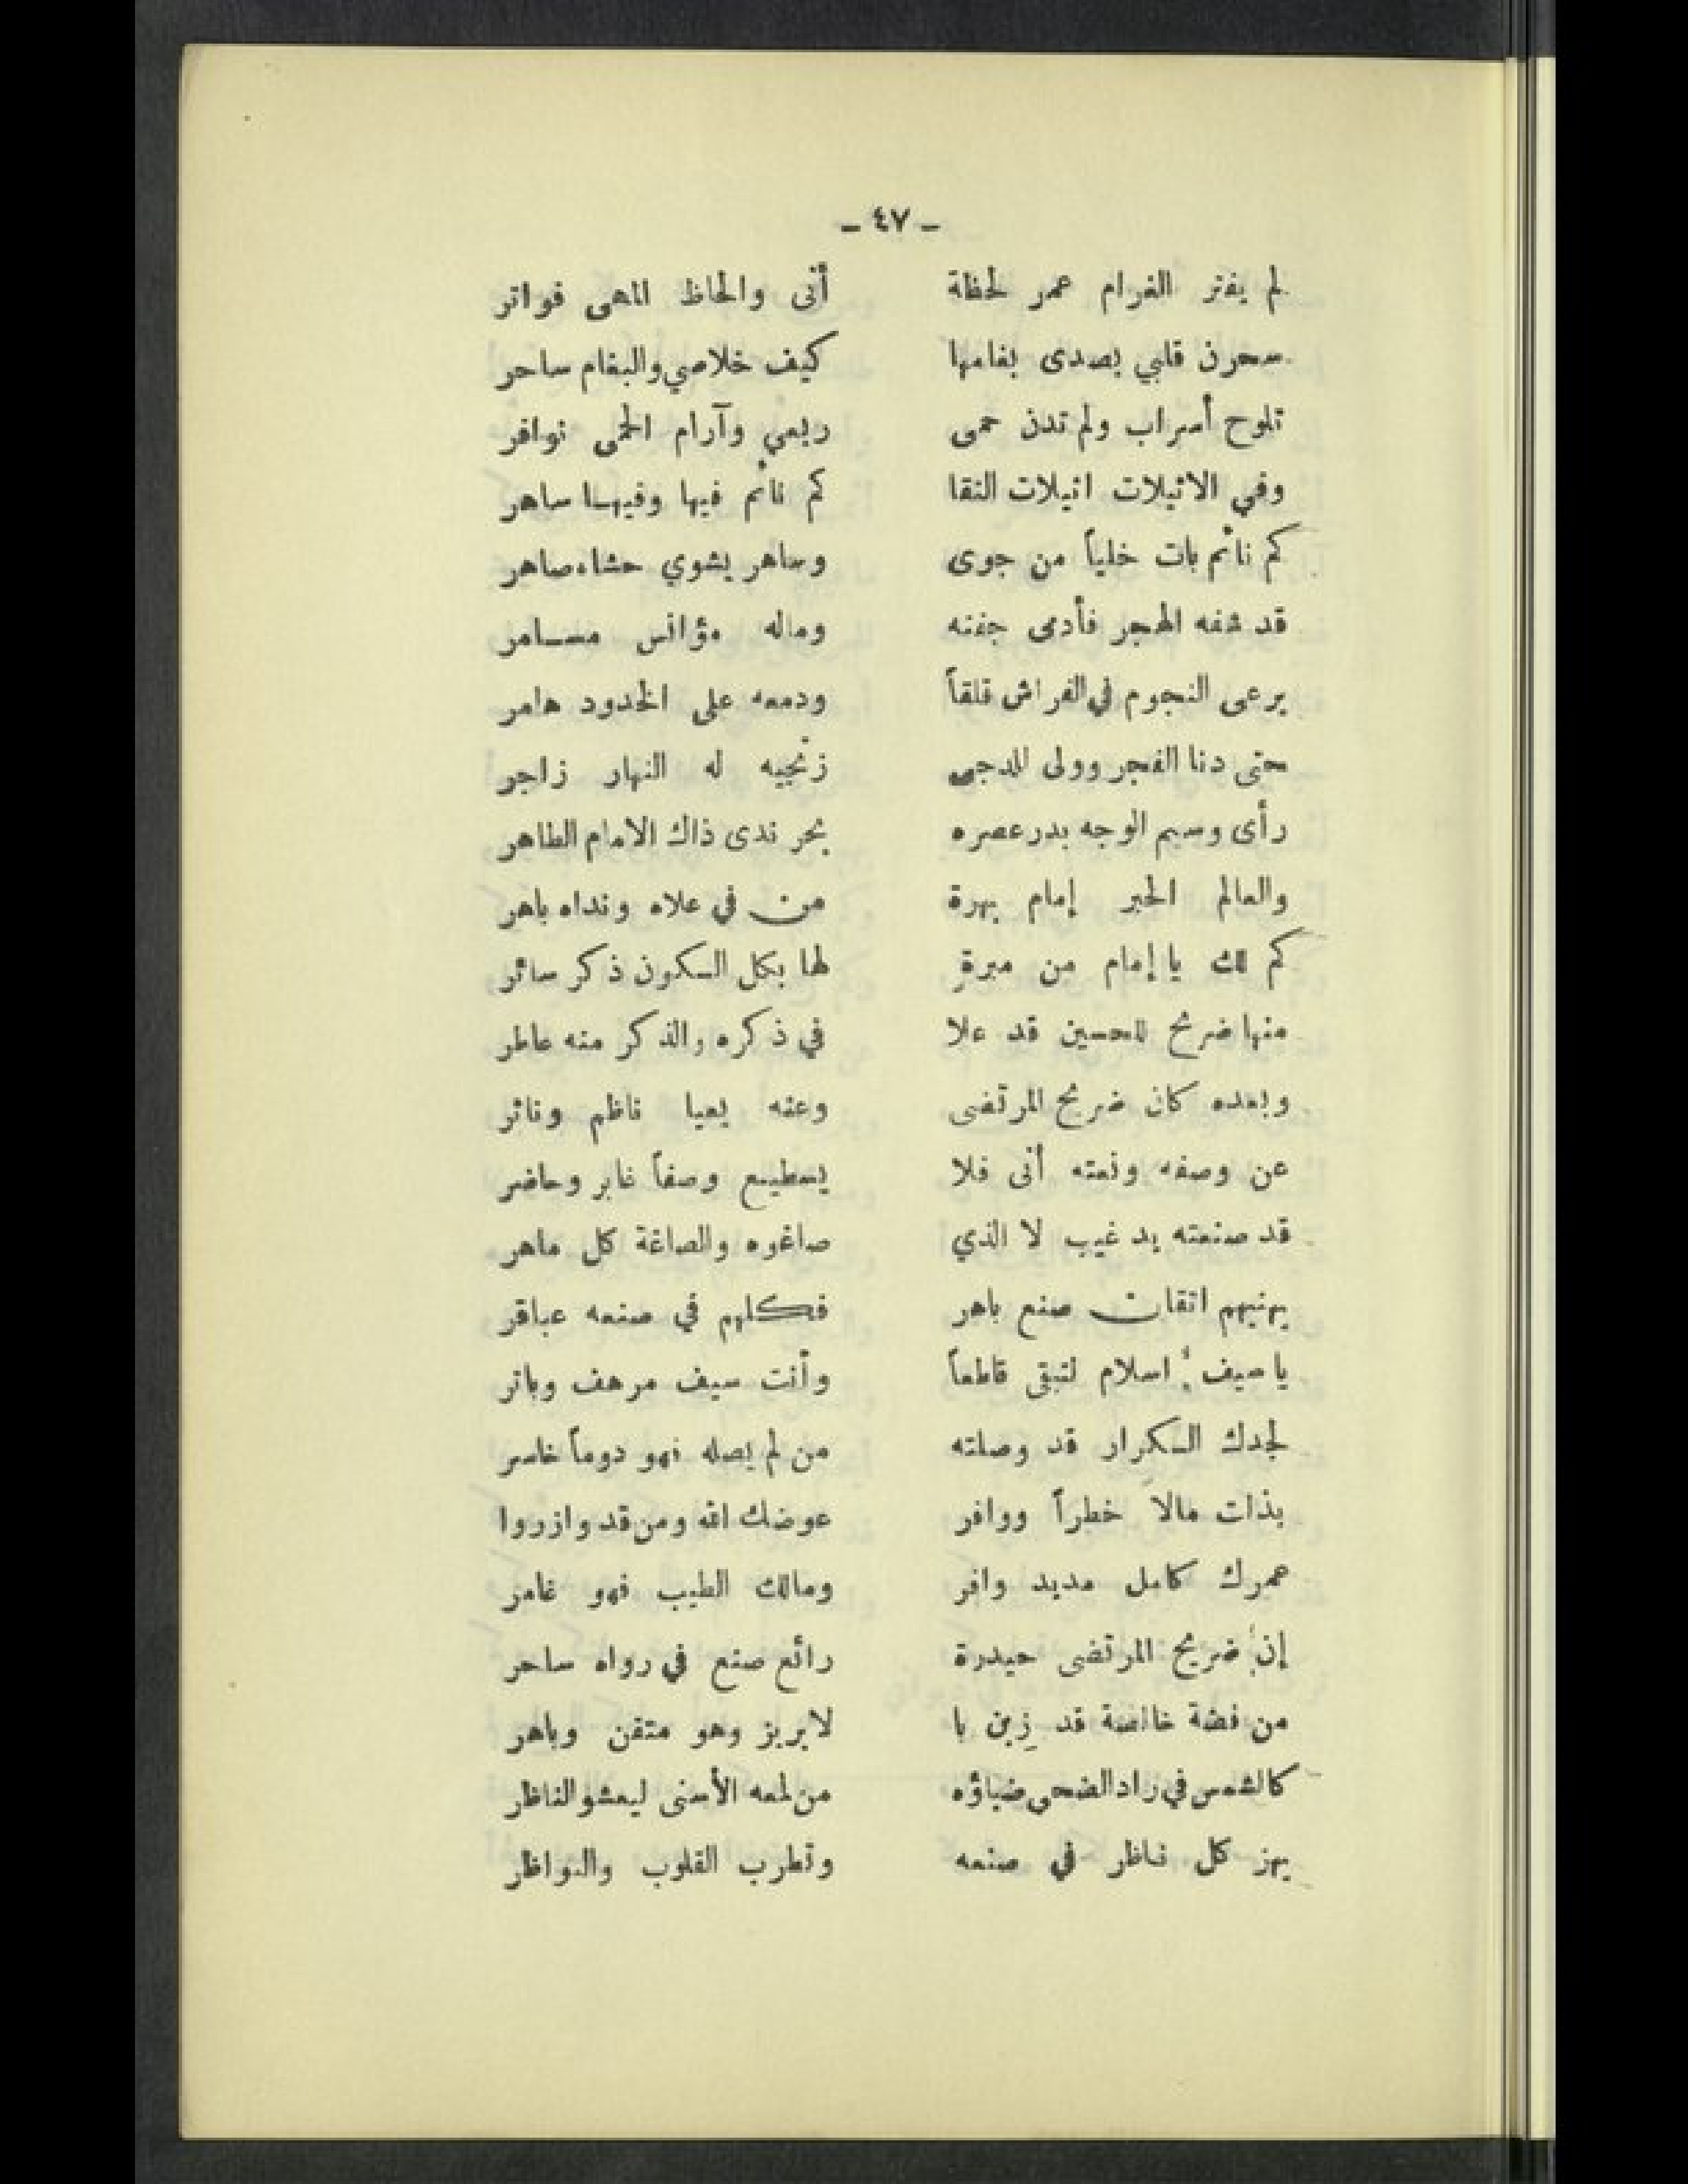 - ٤٧ -
لم يفتر الغرام عمر لحظة أنى والحاظ المهى فواتر
سحرن قلبي بصدى بغامها كيف خلاصي والبغام ساحر
تلوح أسراب ولم تدن حمى ربعي وآرام الحمى نوافر
وفي الاثيلات اثيلات النقا كم نائم فيها وفيها ساهر
كم نائم بات خلياً من جوى وساهر يشوي حشاه صاهر
قد شفه الهجر فأدمى جفنه وماله مؤانس مسامر
يرعى النجوم في الفراش قلقاً ودمعه على الخدود هامر
حتى دنا الفجر وولى للدجى زنجيه له النهار زاجر
رأى وسيم الوجه بدر عصره بحر ندى ذاك الامام الطاهر
والعالم الحبر إمام بهرة من في علاه ونداه باهر
كم لك يا إمام من مبرةٍ لها بكل الكون ذكر سائر
منها ضريح للحسين قد علا في ذكره والذكر منه عاطر
وبعده كان ضريح المرتضى وعنه يعيا ناظم وناثر
عن وصفه ونعته أنى فلا يسطيع وصفاً غابر وحاضر
قد صنعته يد غيب لا الذي صاغوه والصاغة كل ماهر
يهنيهم اتقان صنع باهر فكلهم في صنعه عباقر
يا سيف اسلام لتبقى قاطعاً وأنت سيف مرهف وباتر
لجدك الكرار قد وصلته من لم يصله فهو دوماً خاسر
بذات مالاً خطراً ووافر عوضك الله ومن قد وازروا
عمرك كامل مديد وافر ومالك الطيب فهو غامر
إن ضريح المرتضى حيدرة رائع صنع في رواه ساحر
من فضة خالصة قد زين با لابريز وهو متقن وباهر
كالشمس في راد الضحى ضياؤه من لمعه الأسنى ليعشو الناظر
يهز كل ناظر في صنعه وتطرب القلوب والنواظر